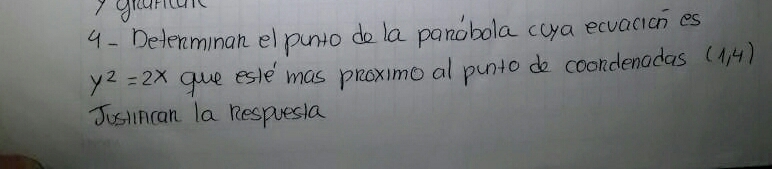 y graficar
4- Determinar el punto de la parábola cuya ecuación es
y² = 2x que esté mas proximo al punto de coordenadas (1,4)
Justificar la respuesta